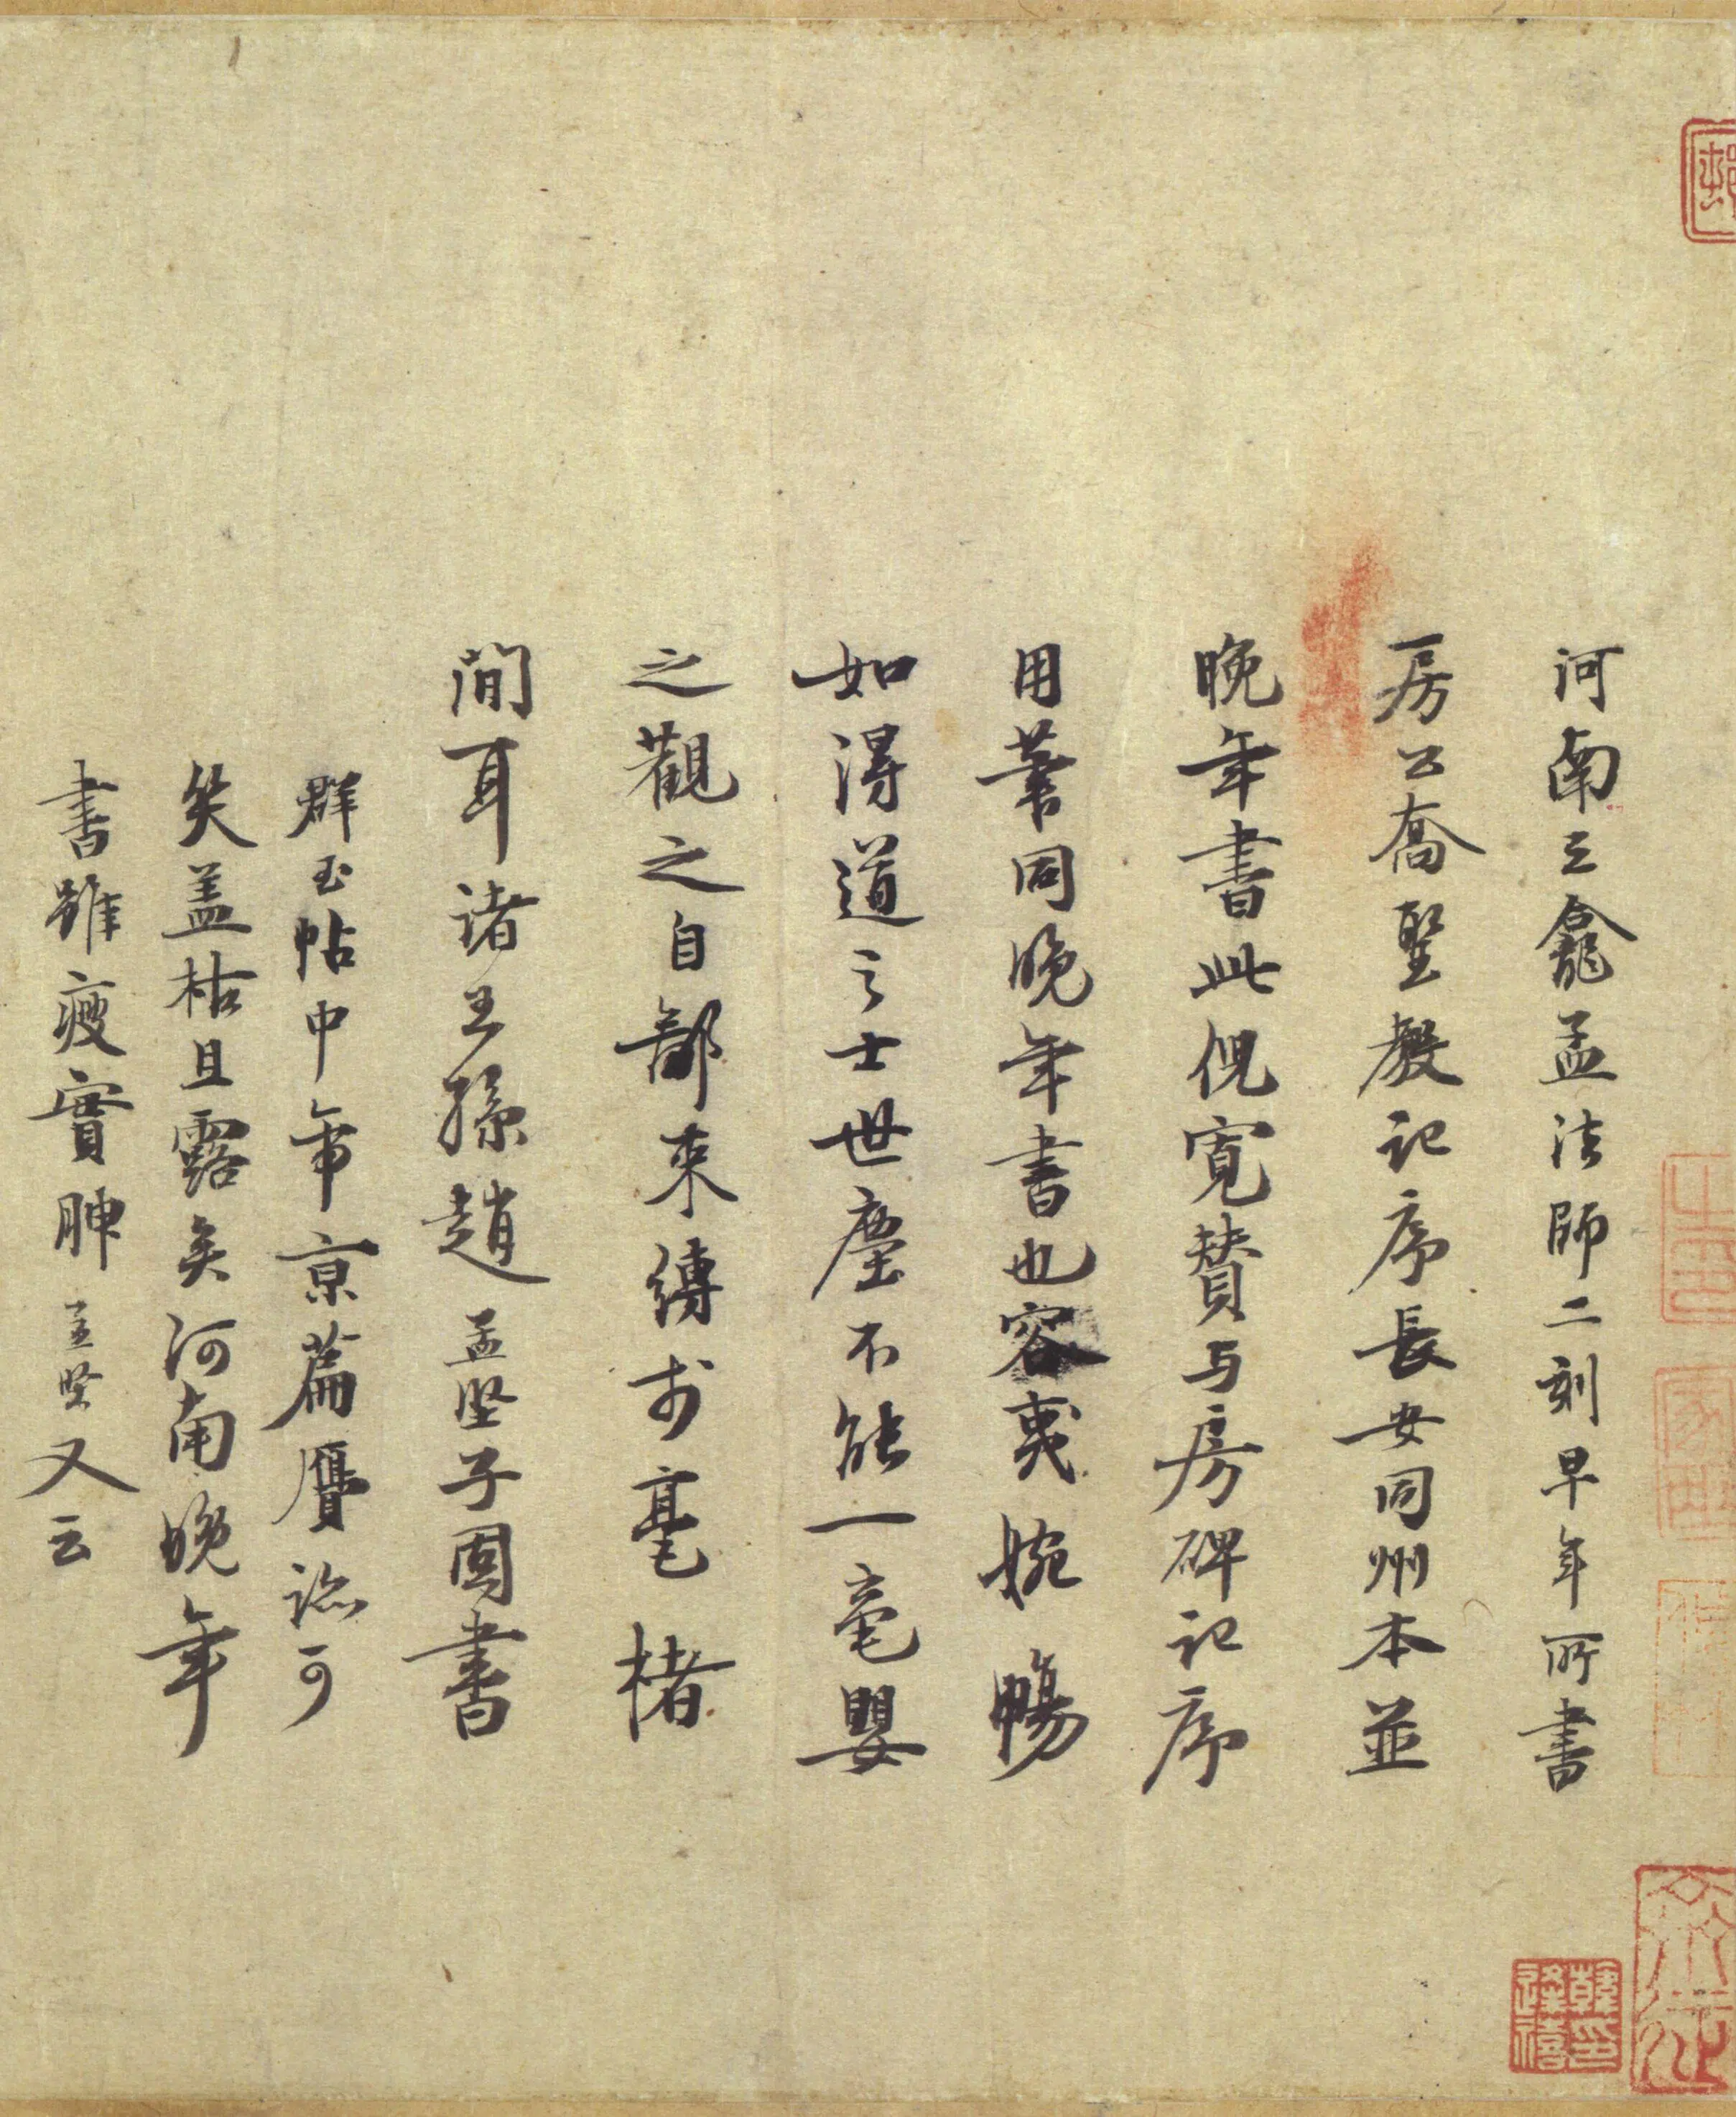 河南三龕孟法師二刻早年所書
房公喬聖教記序長安同州本並
晚年書此倪寬贊与房碑記序
用筆同晚年書也容夷婉暢
如得道之士世塵不能一毫嬰
之觀之自鄙束縛於毫楮
間耳諸王孫趙孟堅子固書
群玉帖中帝京篇贋跡可
笑盖枯且露矣河南晚年
書雖瘦實腴孟堅又云
韓逢禧印